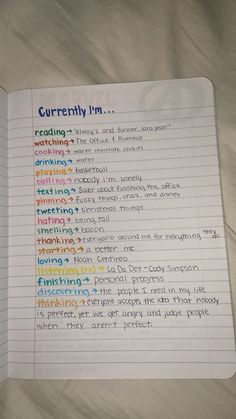 Currently I'm...
reading → "Always and forever, lara jean"
watching → The Office & Riverdale
cooking → warm chocolate cookies
drinking → water
playing → basketball
calling → nobody i'm lonely
texting → about finishing the office
pinning → fuzzy things, crocs, and disney
tweeting → christmas things
hating → being tall
smelling → bacon
thanking → everyone around me for everything they do
starting → a better me
loving → Noah Centineo
listening (to) → La Da Dee - Cody Simpson
finishing → personal progress
discovering → the people I need in my life
thinking → everyone accepts the idea that nobody
is perfect, yet we get angry and judge people
when they aren't perfect.